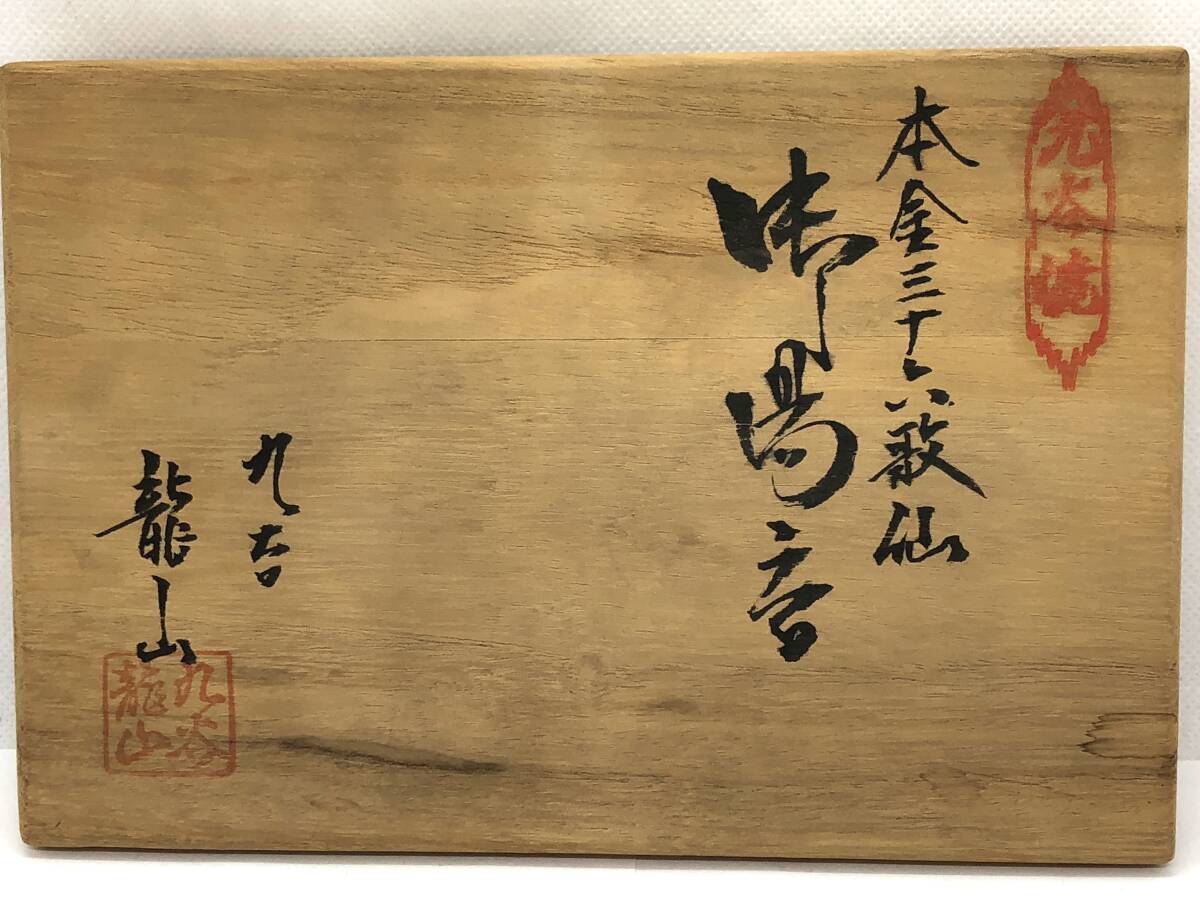 九谷焼
本金三十六歌仙
御湯呑
九谷
龍山
九谷
龍山